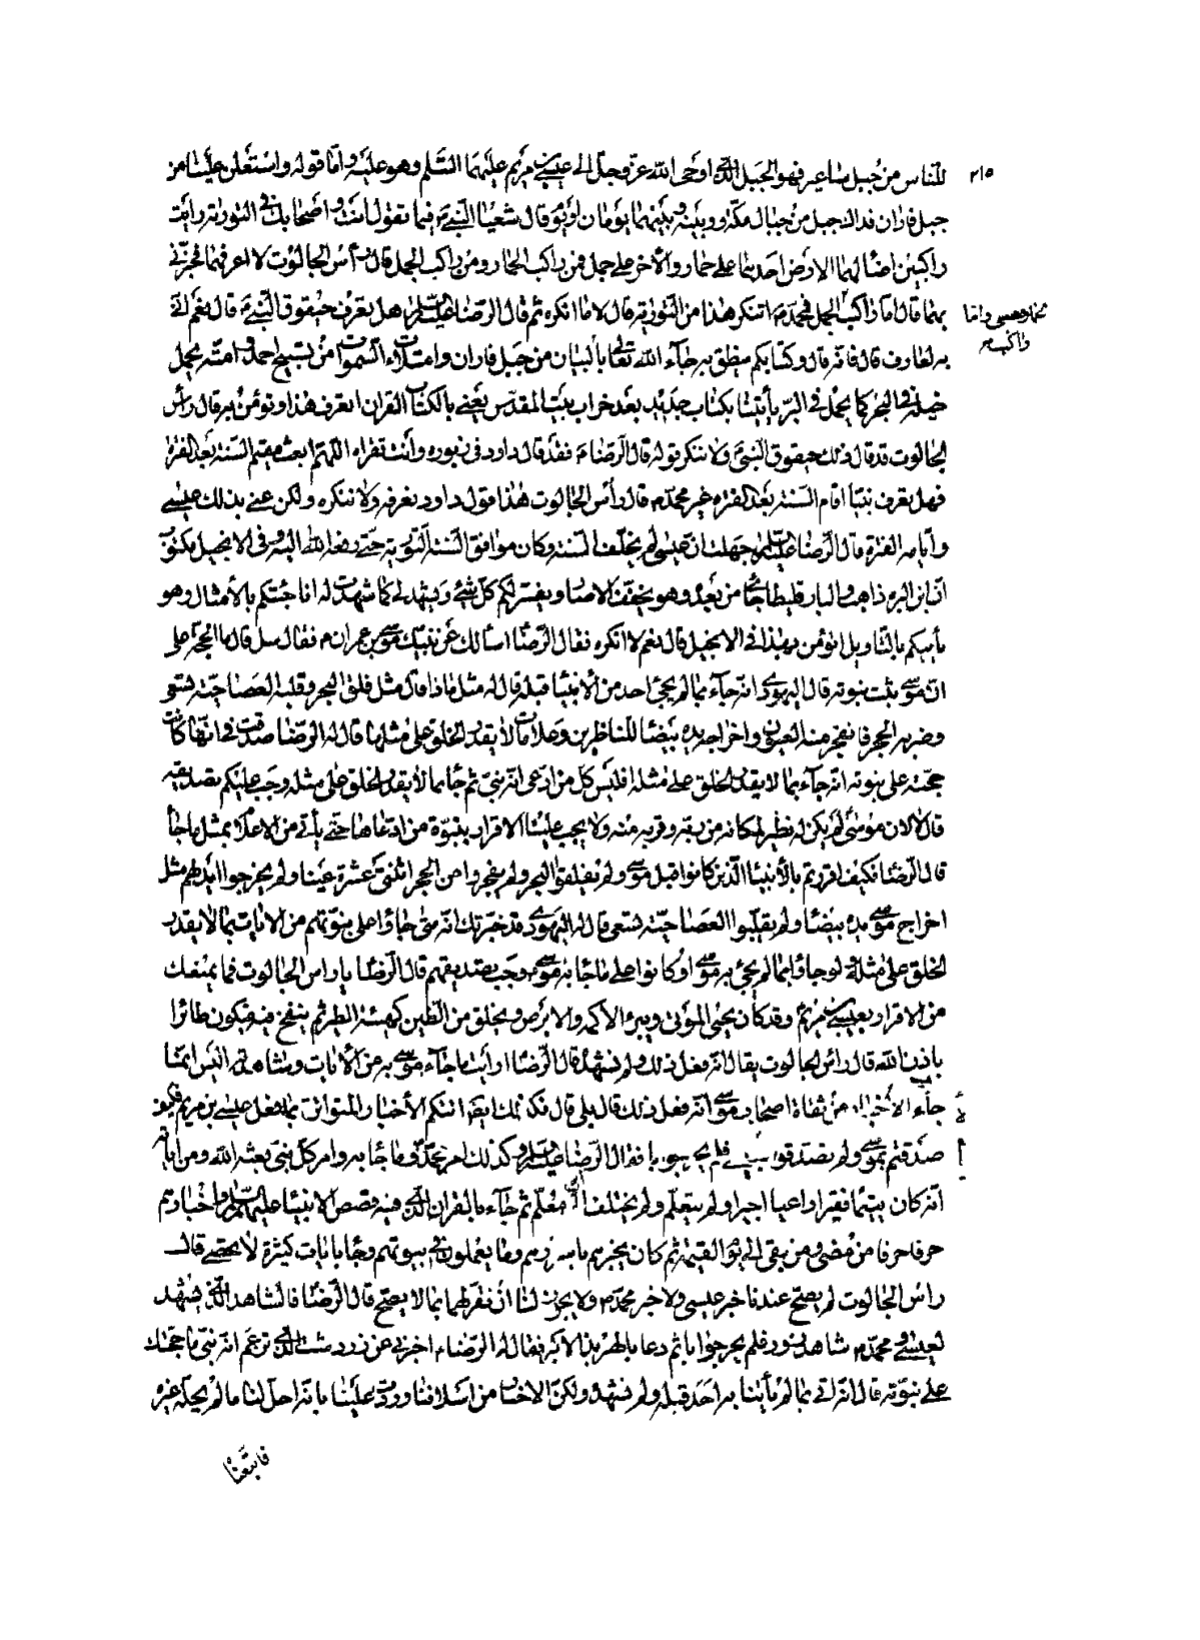 ٢١٥
للناس من جبل ساعير فهو الجبل الذي اوحى الله عز وجل الى عيسى بن مريم عليهما السلم وهو عليه واما قوله واستعلن علينا من
جبل فاران فذاك جبل من جبال مكة وبينه وبينهما يوم او يوم قال شعيا النبي فيما تقول انت واصحابك في التورية رايت
راكبين اضاء لهما الارض احدهما على حمار والاخر على جمل فمن راكب الحمار ومن راكب الجمل قال رأس الجالوت لا اعرفهما فخبرني
بهما قال اما راكب الجمل فمحمد اتنكر هذا من التورية قال لا ما انكره ثم قال الرضا عليه السلم هل تعرف حيقوق النبي قال نعم اني
واما
راكب
به لعارف قال فانه قال وكتابكم ينطق به جاء الله تعالى بالبيان من جبل فاران وامتلات السموات من تسبيح احمد وامته يحمل
خيله في البحر كما يحمل في البر يأتينا بكتاب جديد بعد خراب بيت المقدس يعني بالكتاب القران اتعرف هذا وتؤمن به قال رأس
الجالوت قد قال ذلك حيقوق النبي ولا ننكر قوله قال الرضا فقد قال داود في زبوره وانت تقراه اللهم ابعث مقيم السنة بعد الفترة
فهل تعرف نبيا اقام السنة بعد الفترة غير محمد قال رأس الجالوت هذا قول داود نعرفه ولا ننكره ولكن عنى بذلك عيسى
وايامه الفترة قال الرضا عليه السلم جهلت ان عيسى لم يخالف السنة وكان موافق السنة التورية حتى رفعه الله اليه وفي الانجيل مكتوب
ان ابن البره ذاهب والبارقليطا جائي من بعده وهو يخفف الاصار ويفسر لكم كل شئ ويشهد لي كما شهدت له انا جئتكم بالامثال وهو
يأتيكم بالتاويل اتؤمن بهذا في الانجيل قال نعم لا انكره فقال الرضا اسالك عن نبيك موسى بن عمران فقال سل قال ما الحجة على
ان موسى ثبت نبوته قال اليهودي انه جاء بما لم يجئ احد من الانبيا قبله قال له مثل ماذا قال مثل فلق البحر وقلبه العصا حية تسعى
وضربه الحجر فانفجر منه العيون واخراجه يده بيضا للناظرين وعلامات لا يقدر الخلق على مثلها قال له الرضا صدقت في انها كانت
حجته على نبوته انه جاء بما لا يقدر الخلق على مثله افليس كل من ادعى انه نبي ثم جا بما لا يقدر الخلق على مثله وجب عليكم تصديقه
قال لا لان موسى لم يكن له نظير لمكانه من ربه وقربه منه ولا يجب علينا الاقرار بنبوة من ادعاها حتى يأتي من الاعلام بمثل ما جا
قال الرضا فكيف اقررتم بالانبيا الذين كانوا قبل موسى ولم يفلقوا البحر ولم يفجروا من الحجر اثنتي عشرة عينا ولم يخرجوا ايديهم مثل
اخراج موسى يده بيضا ولم يقلبوا العصا حية تسعى قال له اليهودي قد خبرتك انه متى جاؤا على نبوتهم من الايات بما لا يقدر
الخلق على مثله ولو جاؤا بما لم يجئ به موسى او كانوا على ما جا به موسى وجب تصديقهم قال الرضا يا راس الجالوت فما يمنعك
من الاقرار بعيسى بن مريم وقد كان يحيي الموتى ويبرئ الاكمه والابرص ويخلق من الطين كهيئة الطير ثم ينفخ فيه فيكون طائرا
باذن الله قال راس الجالوت يقال انه فعل ذلك ولم نشهده قال الرضا ارايت ما جاء موسى به من الايات وشاهدته اليس انما
جاء الاخبار من ثقاة اصحاب موسى انه فعل ذلك قال بلى قال فكذلك ايضا اتتكم الاخبار المتواترة بما فعل عيسى بن مريم فكيف
صدقتم بموسى ولم تصدقوا بعيسى فلم يحر جوابا فقال الرضا عليه السلم وكذلك امر محمد وما جا به وامر كل نبي بعثه الله ومن اياته
انه كان يتيما فقيرا راعيا اجيرا ولم يتعلم ولم يختلف الى معلم ثم جاء بالقران الذي فيه قصص الانبيا عليهم السلم واخبارهم
حرفا حرفا من مضى ومن بقي الى يوم القيمة ثم كان يخبرهم باسرارهم وما يعملون في بيوتهم وجا بايات كثيرة لا تحصى قال
راس الجالوت لم يصح عندنا خبر عيسى ولا خبر محمد ولا يجوز لنا ان نقر لهما بما لا يصح قال الرضا فالشاهد الذي شهد
لعيسى ومحمد شاهد زور فلم يحر جوابا ثم دعا بالهربذ الاكبر فقال له الرضا اخبرني عن زردشت الذي تزعم انه نبي ما حجتك
على نبوته قال انه اتى بما لم يأتنا به احد قبله ولم نشهده ولكن الاخبار من اسلافنا وردت علينا بانه احل لنا ما لم يحله غيره
فاتبعناه